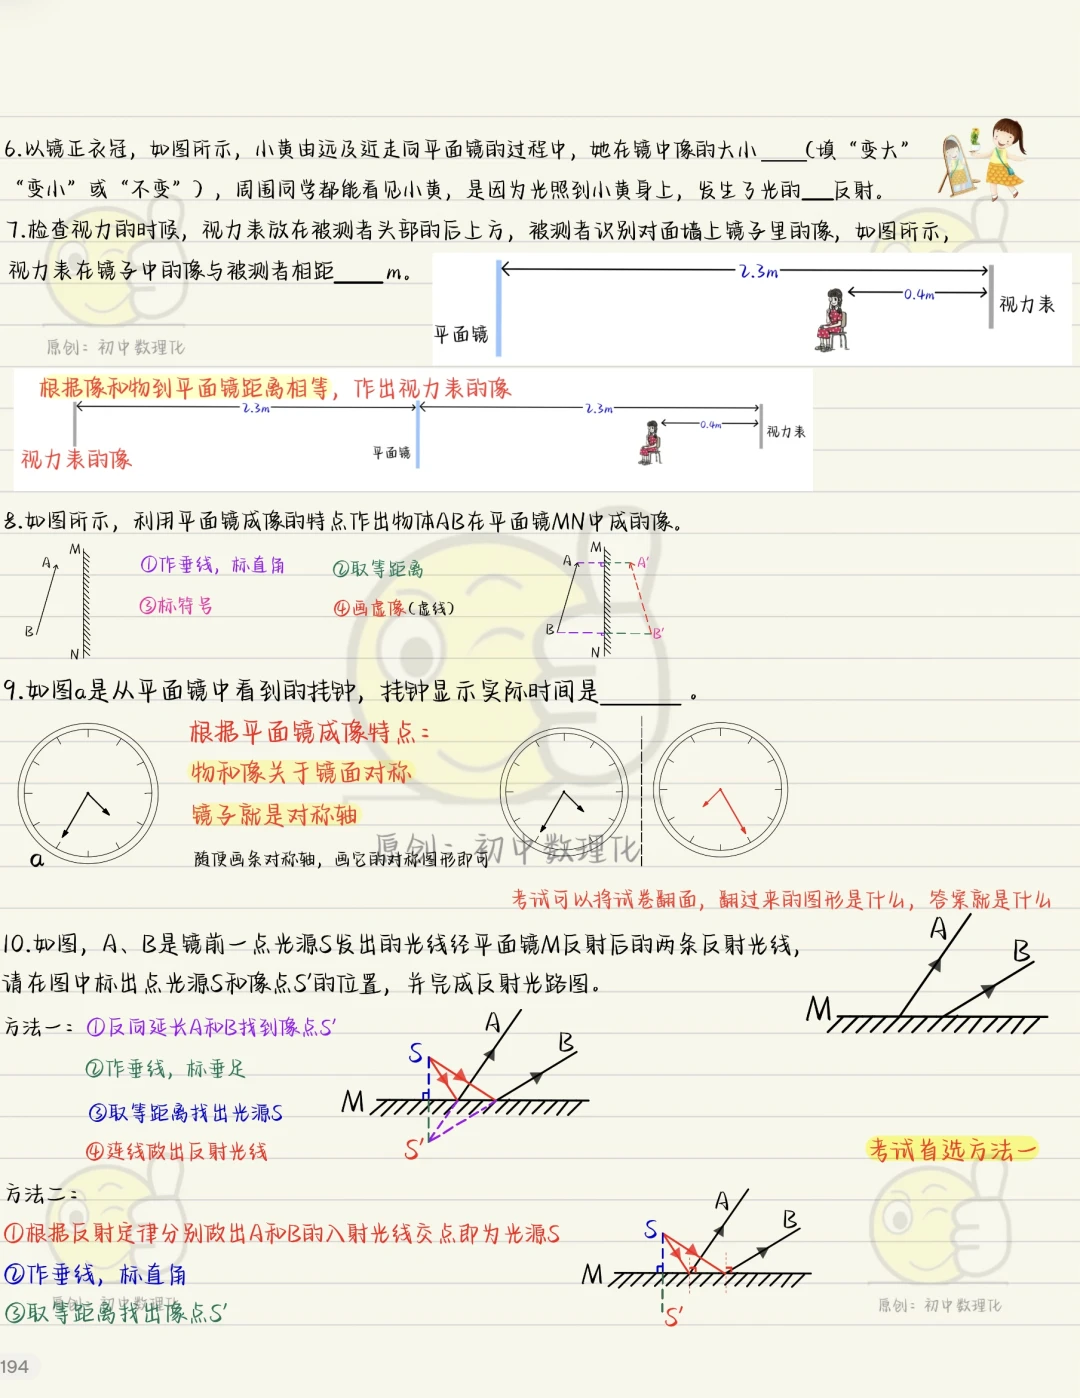 6.以镜正衣冠，如图所示，小黄由远及近走向平面镜的过程中，她在镜中像的大小____(填“变大”
“变小”或“不变”)，周围同学都能看见小黄，是因为光照到小黄身上，发生了光的___反射。
7.检查视力的时候，视力表放在被测者头部的后上方，被测者识别对面墙上镜子里的像，如图所示，
视力表在镜子中的像与被测者相距____m。
2.3m
0.4m
视力表
平面镜
原创：初中数理化
根据像和物到平面镜距离相等，作出视力表的像
2.3m
2.3m
0.4m
视力表
平面镜
视力表的像
8.如图所示，利用平面镜成像的特点作出物体AB在平面镜MN中成的像。
M
A
B
N
①作垂线，标直角
②取等距离
③标符号
④画虚像(虚线)
M
A
A′
B
B′
N
9.如图a是从平面镜中看到的挂钟，挂钟显示实际时间是_______。
根据平面镜成像特点：
物和像关于镜面对称
镜子就是对称轴
a
随便画条对称轴，画它的对称图形即可
原创：初中数理化
考试可以将试卷翻面，翻过来的图形是什么，答案就是什么
10.如图，A、B是镜前一点光源S发出的光线经平面镜M反射后的两条反射光线，
请在图中标出点光源S和像点S′的位置，并完成反射光路图。
A
B
M
方法一：①反向延长A和B找到像点S′
②作垂线，标垂足
③取等距离找出光源S
④连线做出反射光线
S
A
B
M
S′
考试首选方法一
方法二：
①根据反射定律分别做出A和B的入射光线交点即为光源S
②作垂线，标直角
③取等距离找出像点S′
原创：初中数理化
S
A
B
M
S′
原创：初中数理化
194